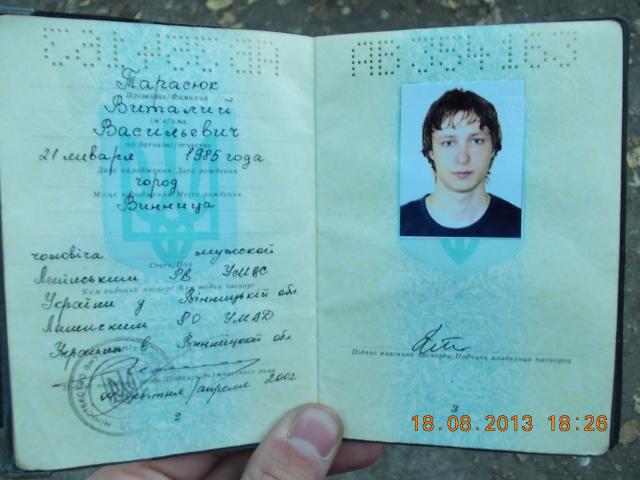 Тарасюк
Прізвище/Фамилия
Виталий
ім'я/имя
Васильевич
по батькові/отчество
21 января 1985 года
Дата народження/Дата рождения
город
Місце народження/Место рождения
Винница
чоловіча мужской
Стать/Пол
Ленінським РВ УМВС
Ким виданий паспорт/Кем выдан паспорт
України у Вінницькій обл
Ленинским РО УМВД
Украины в Винницкой обл
Підпис должностного лица
квітня/апреля 2002
2
АВ 354163
Підпис власника паспорта/Подпись владельца паспорта
3
18.08.2013 18:26